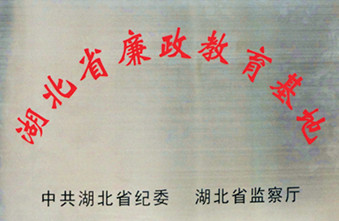 湖北省廉政教育基地
中共湖北省纪委 湖北省监察厅